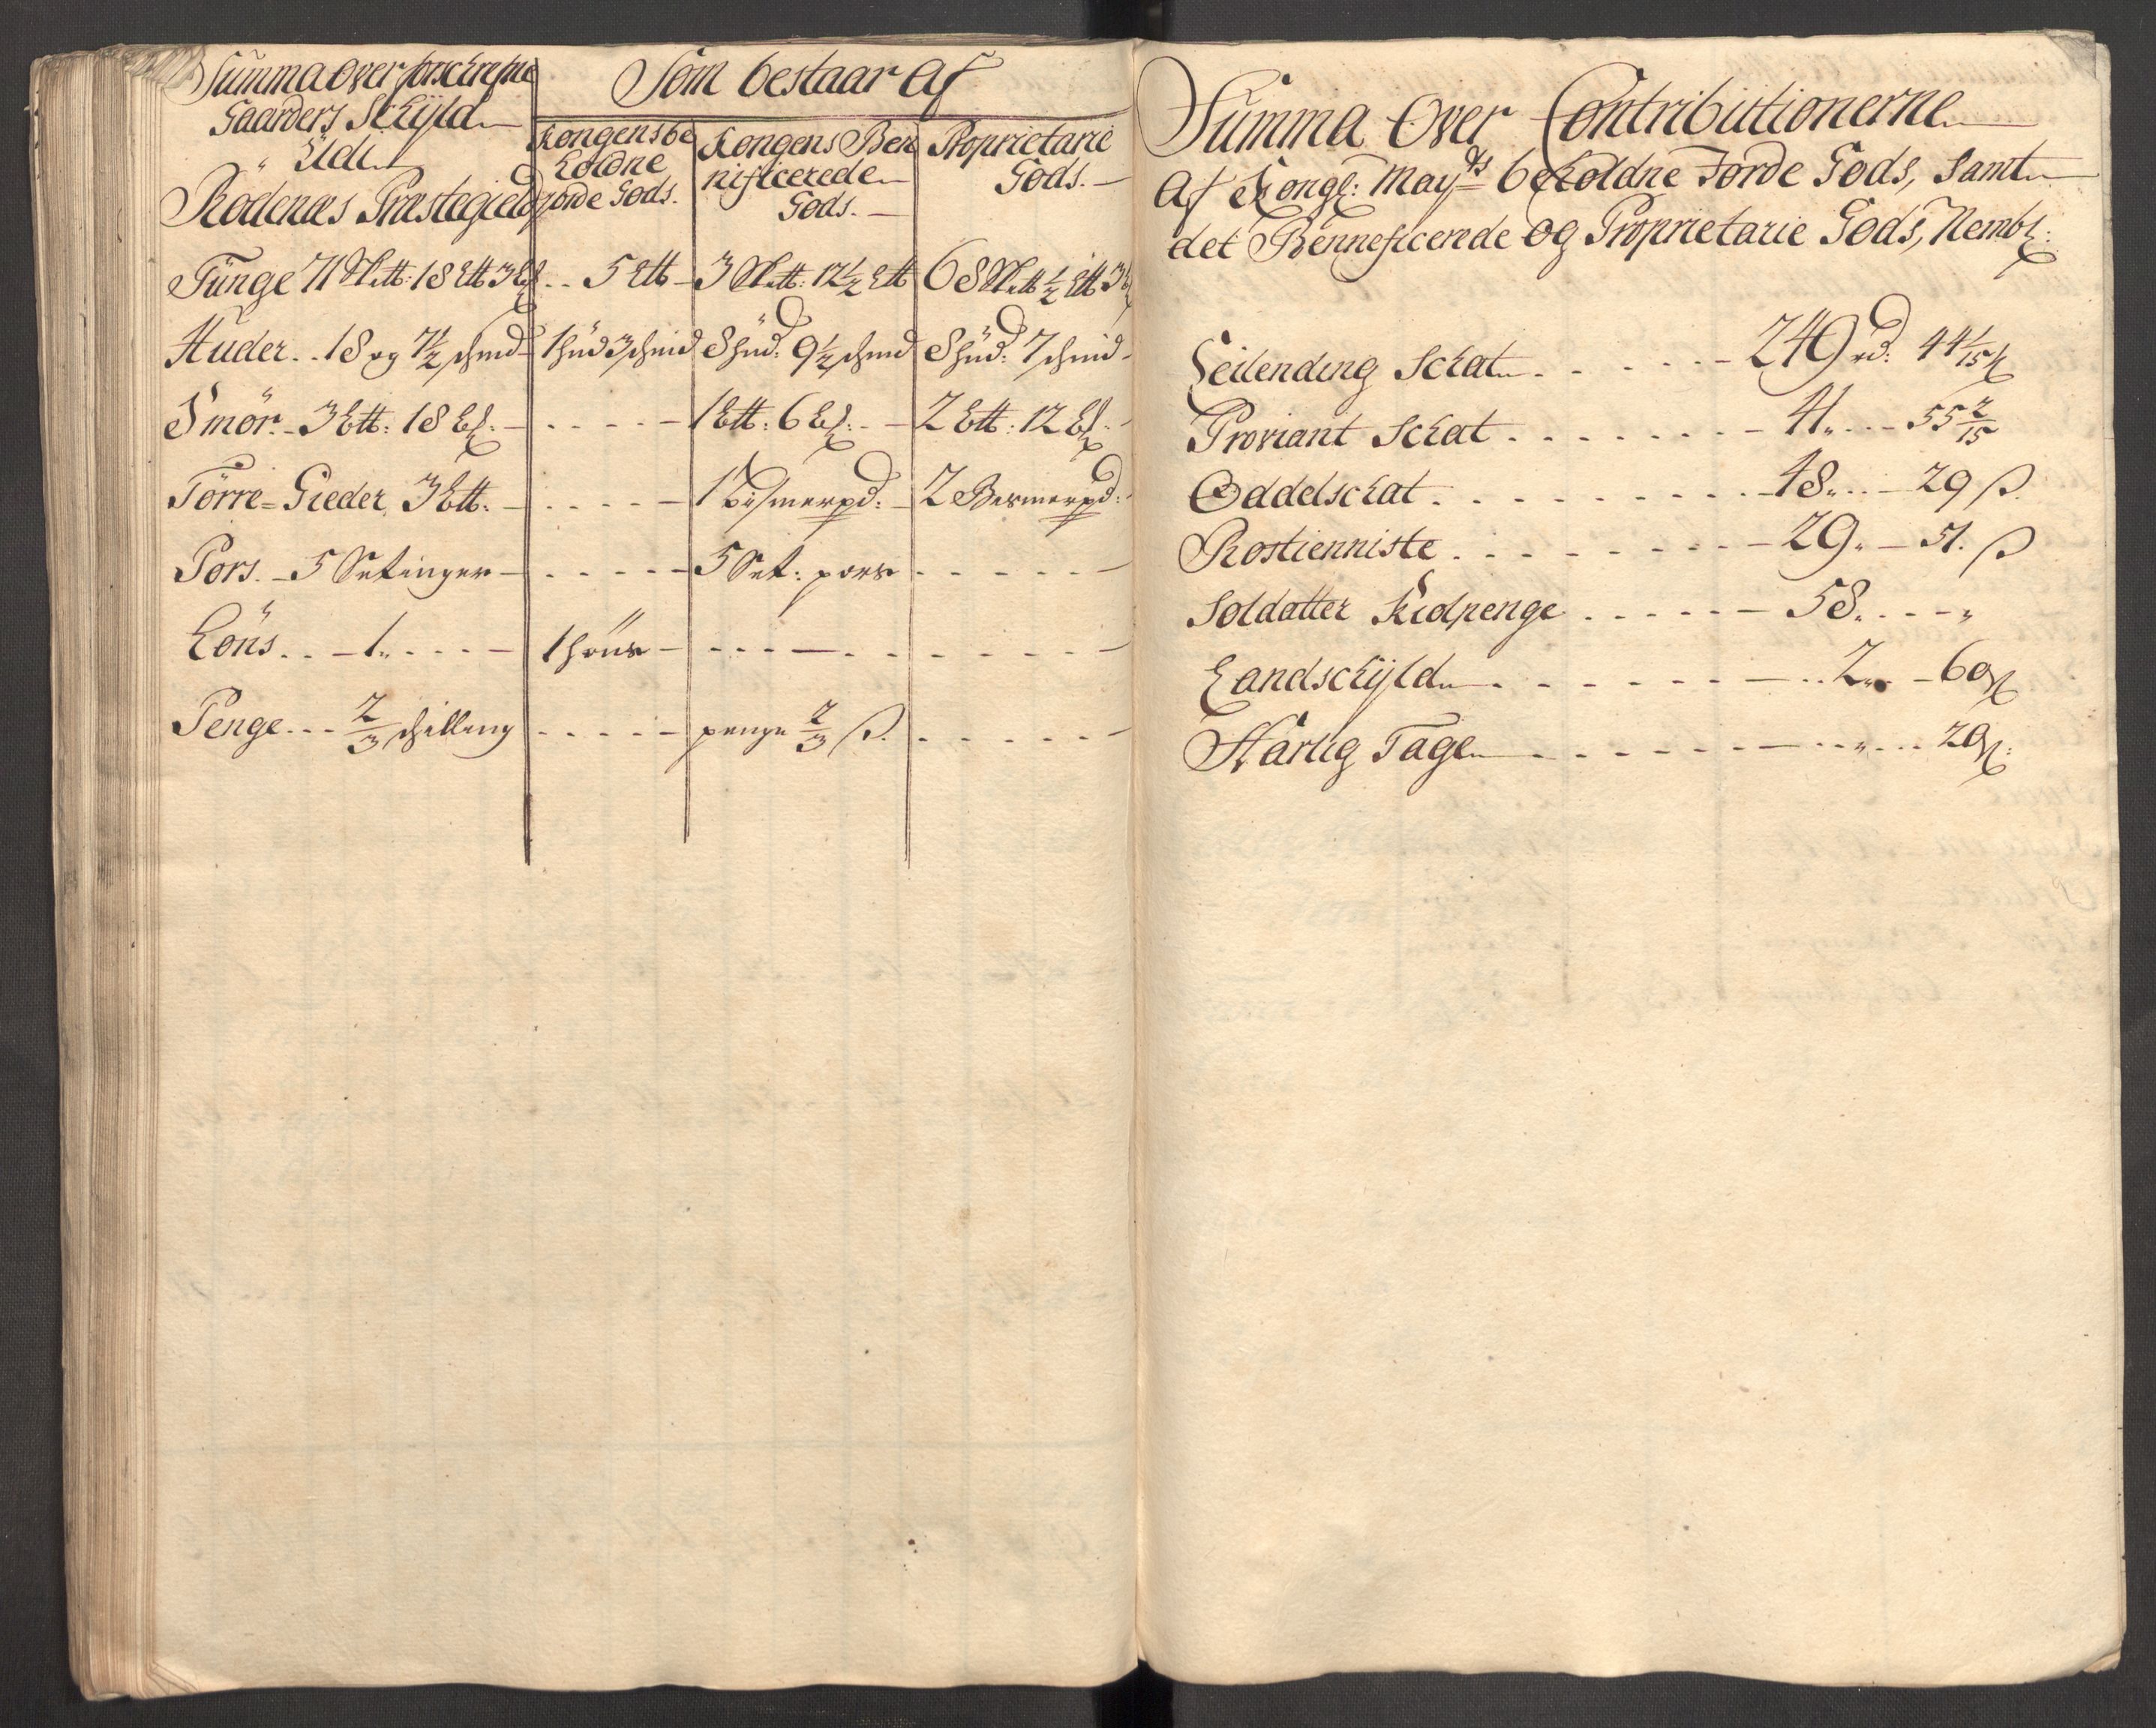 Summa Over forschrefne
Gaarders Schÿld
Udi
Rødenæs Præstegield
Som bestaar Af
Kongens be
holdne
Jorde Gods.
Kongens Ben
nificerede
Gods.
Proprietarie
Gods.
Tunge 71 Skltt: 18 Ltt 3 Bl .. 5 Ltt - 3 Skltt: 12½ Ltt 68 Skltt ½ Ltt 3
Huder .. 18 og 7½ schind 1 hud 3 schind 8 hud: 9½ schind 8 hud: 7 schind
Smör. - 3 btt: 18 bl: - - - - - 1 btt: 6 bl: - 2 btt: 12 bl:
Törre-Gieder 3 btt. - - - - - 1 bismerpd: - 2 Bismerpd:
Pors. - 5 Setinger - - - - - 5 Set: pors - - - - -
Höns .. - 1 .. - - - 1 höns - - - - - - - - -
Penge ... 2/3 schilling - - - - - penge 2/3 ß. - - - - -
Summa Over Contributionerne
Af Kongl: Mayts beholdne Jorde Gods, Samt
det Bennificerede Og Proprietarie Gods, Nembl:
Leilending Schat - - - - - 249 rd: 44 1/15 ß
Proviant Schat - - - - - - 41 .. - 55 2/15
Oddelschat - - - - - - - - 48 .. - 29 ß.
Rostienniste - - - - - - - 29 .. - 51. ß
Soldatter Kiolpenge - - - - - 58 .. - - "
Landschÿld - - - - - - - 2 .. - 60 ß
Harug Tage - - - - - - - " .. 20 ß: